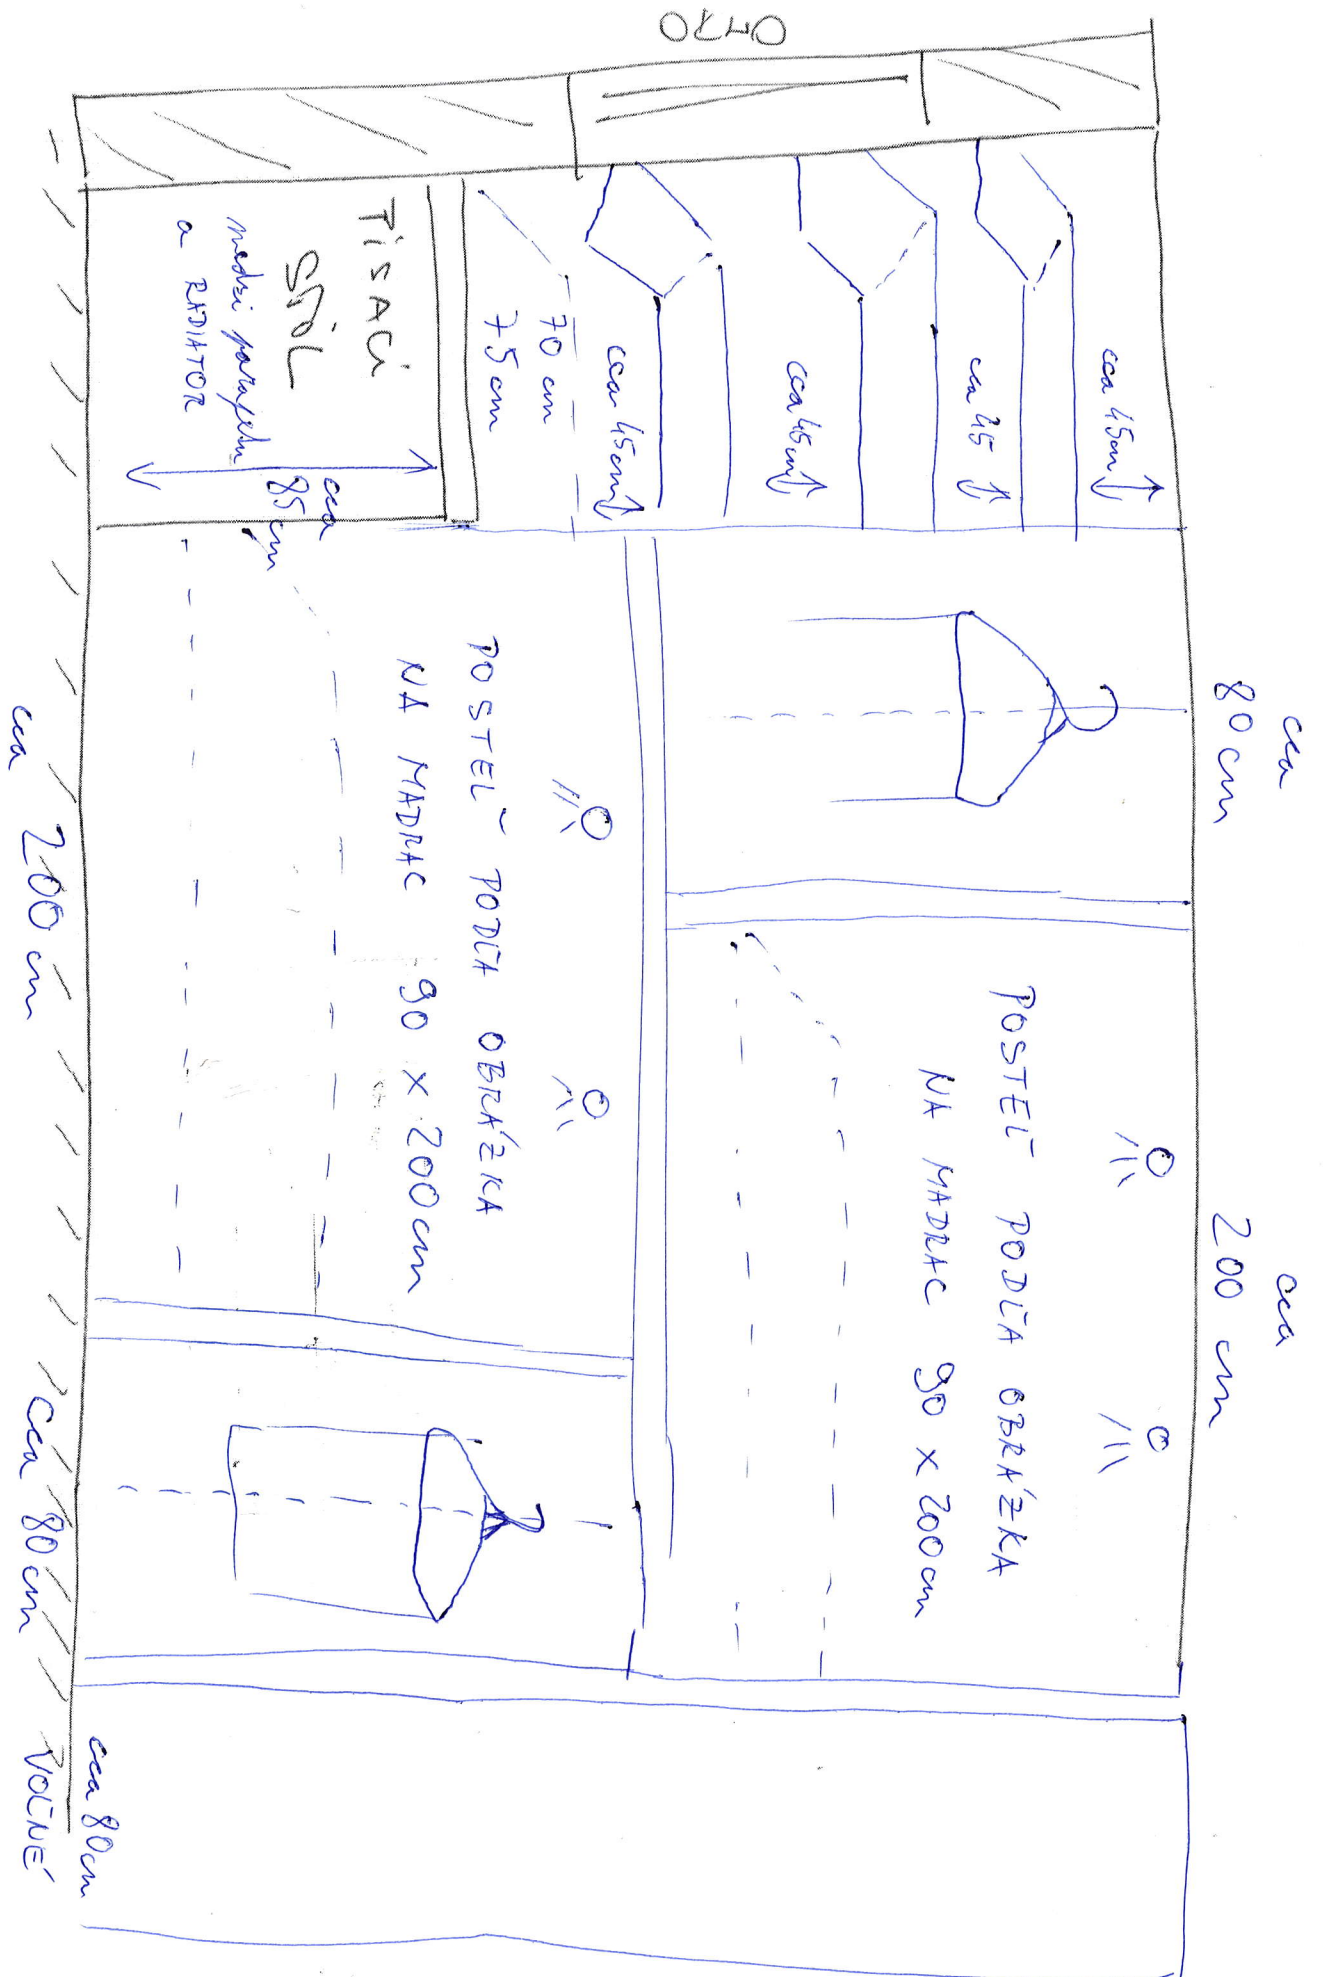 OKNO
cca
80 cm
cca
200 cm
cca 45cm
cca 45
cca 45cm
cca 45cm
70 cm
75 cm
PÍSACÍ
STÔL
medzi parapetu
a RADIATOR
cca
85 cm
POSTEĽ PODĽA OBRÁZKA
NA MADRAC 90 x 200 cm
POSTEĽ PODĽA OBRÁZKA
NA MADRAC 90 x 200 cm
cca 200 cm
cca 80 cm
cca 80 cm
VOĽNÉ